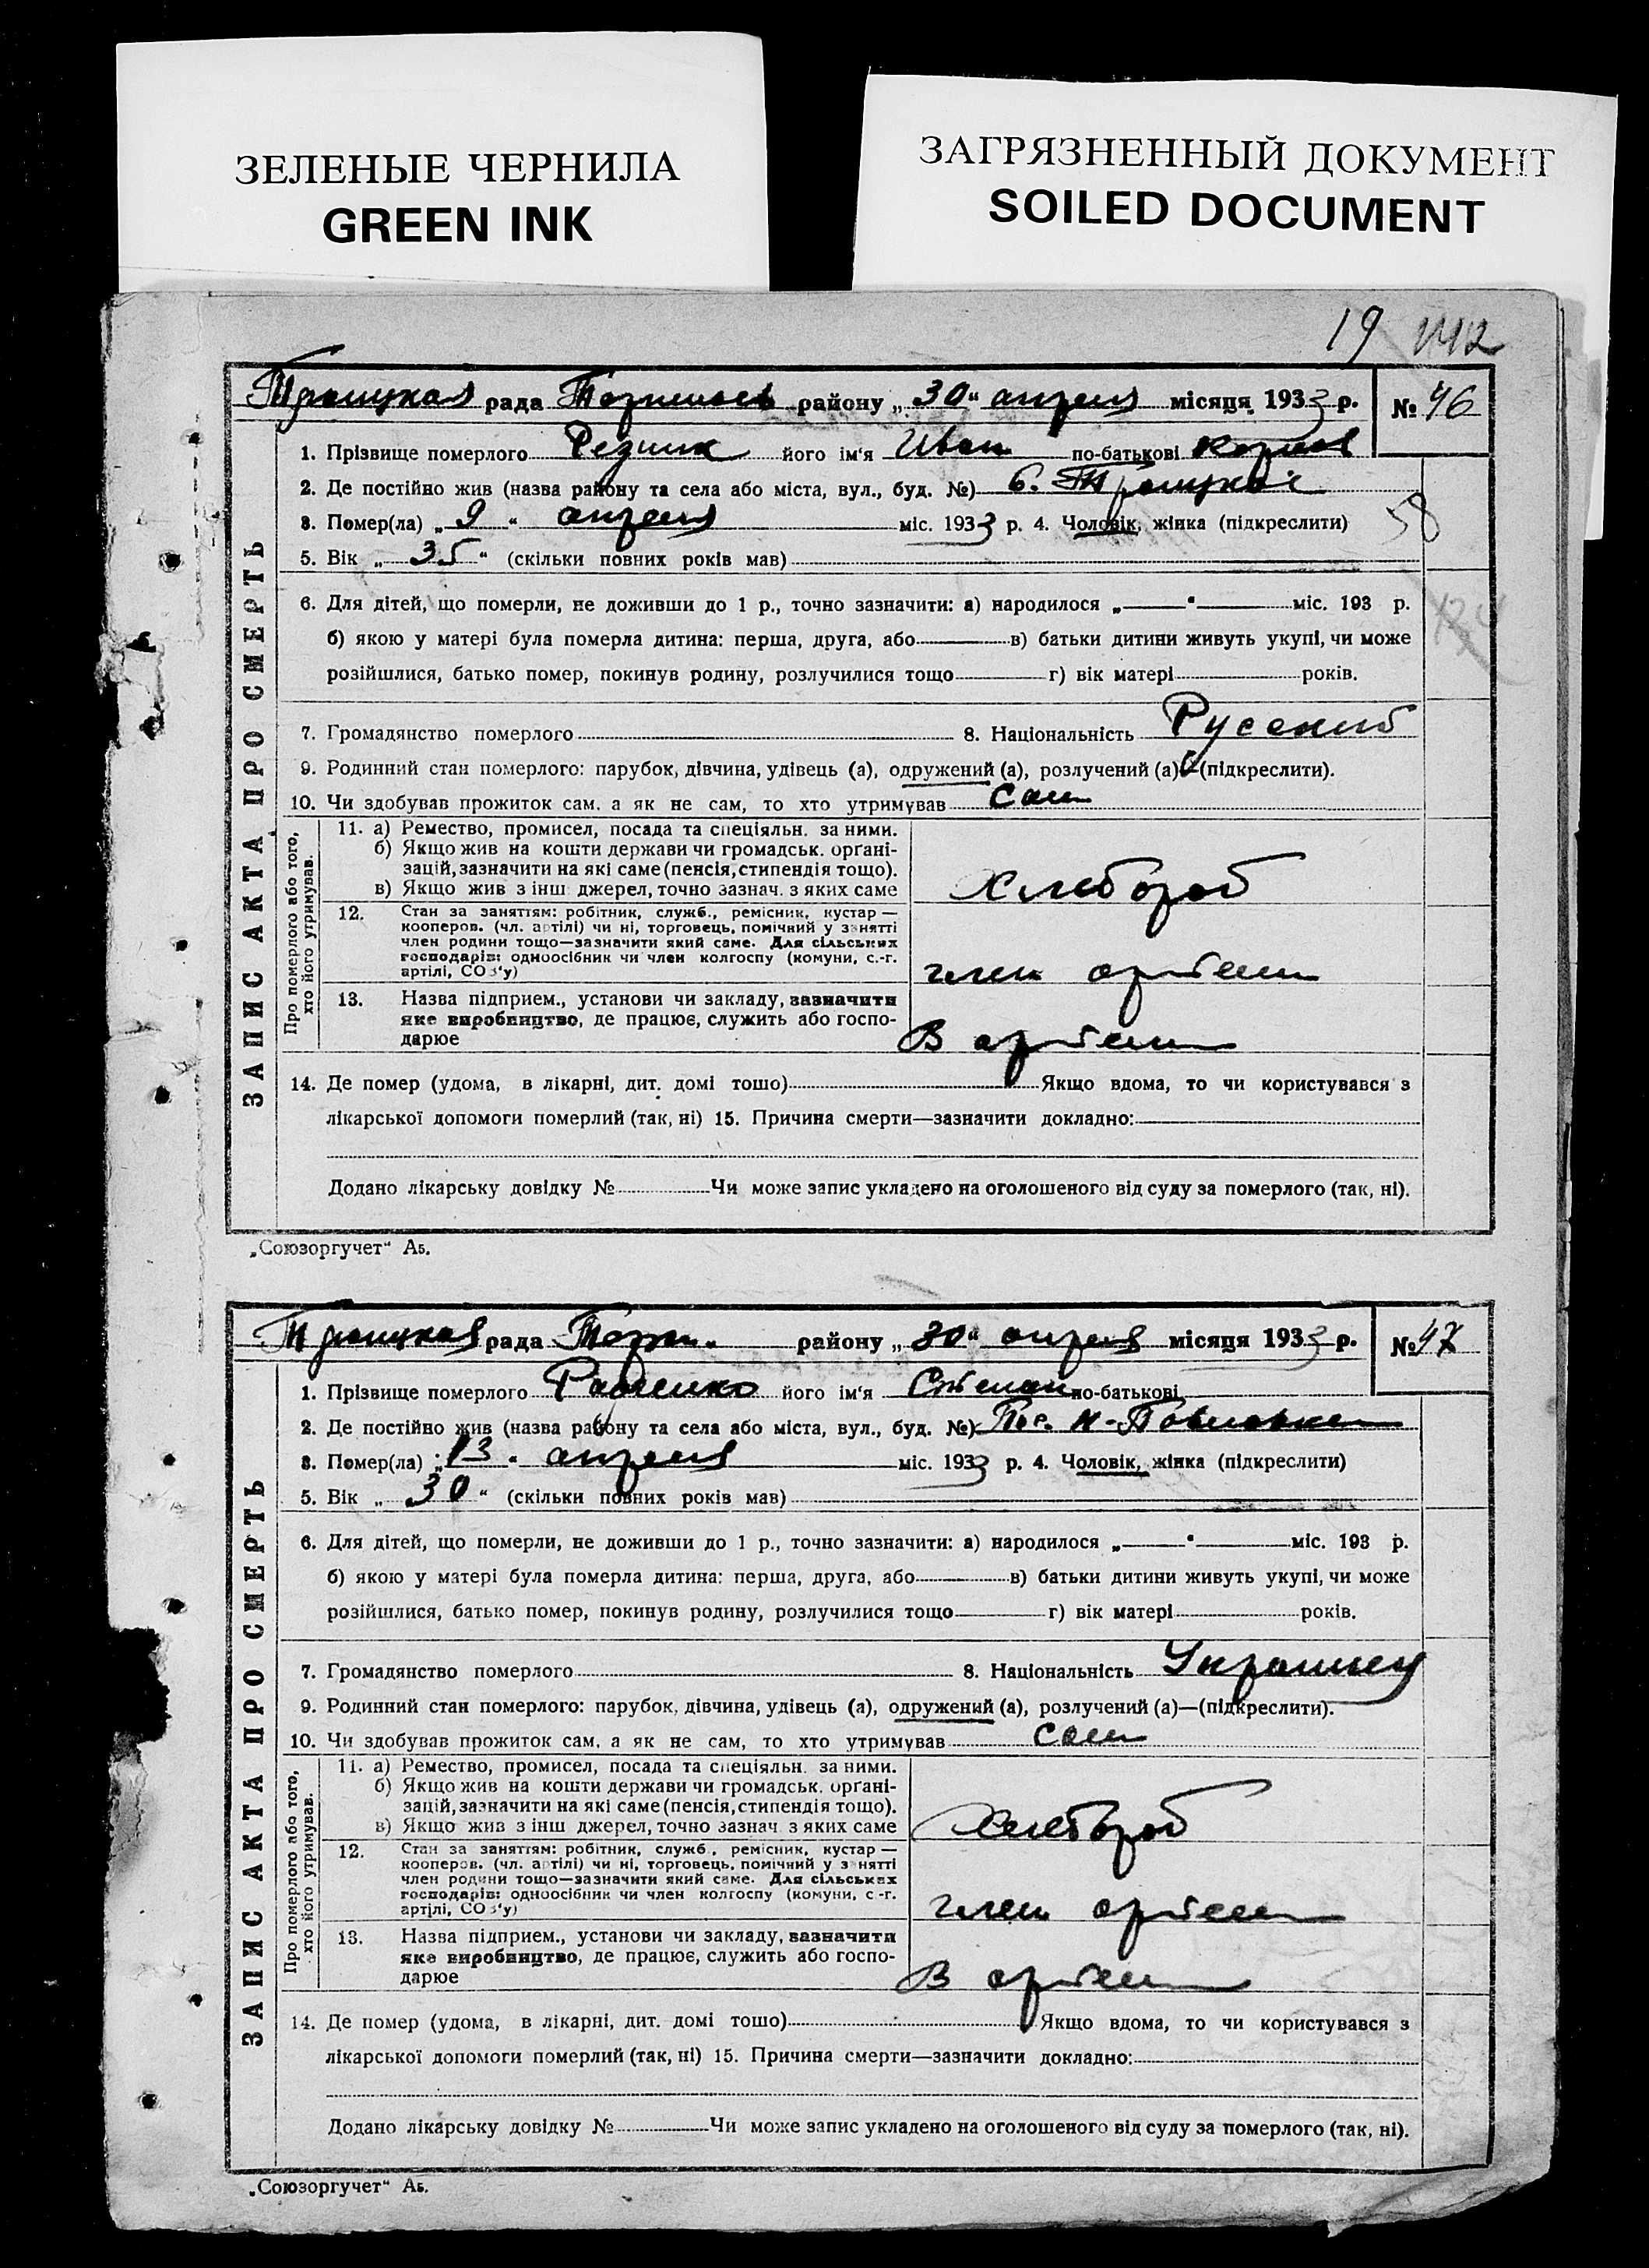 ЗЕЛЕНЫЕ ЧЕРНИЛА
GREEN INK
ЗАГРЯЗНЕННЫЙ ДОКУМЕНТ
SOILED DOCUMENT
19 142
Троицкая рада району „30“ апреля місяця 1933 р. № 46
1. Прізвище померлого Резник його ім'я Иван по-батькові
2. Де постійно жив (назва району та села або міста, вул., буд. №) с. Троицкое
3. Помер(ла) „9“ апреля міс. 1933 р. 4. Чоловік, жінка (підкреслити)
58
5. Вік „35“ (скільки повних років мав)
6. Для дітей, що померли, не доживши до 1 р., точно зазначити: а) народилося „ “ міс. 193 р.
б) якою у матері була померла дитина: перша, друга, або в) батьки дитини живуть укупі, чи може
розійшлися, батько помер, покинув родину, розлучилися тощо г) вік матері років.
7. Громадянство померлого 8. Національність Русский
9. Родинний стан померлого: парубок, дівчина, удівець (а), одружений (а), розлучений (а)—(підкреслити).
10. Чи здобував прожиток сам, а як не сам, то хто утримував сам
ЗАПИС АКТА ПРО СМЕРТЬ
Про померлого або того, хто його утримував.
11. а) Ремество, промисел, посада та спеціяльн. за ними.
б) Якщо жив на кошти держави чи громадськ. орґані-
зацій, зазначити на які саме (пенсія, стипендія тощо).
в) Якщо жив з інш джерел, точно зазнач. з яких саме
Хлебороб
12. Стан за заняттям: робітник, служб., ремісник, кустар —
кооперов. (чл. артілі) чи ні, торговець, помічний у занятті
член родини тощо—зазначити який саме. Для сільських
господарів: одноосібник чи член колгоспу (комуни, с.-г.
артілі, СОЗ'у)
член артели
13. Назва підприєм., установи чи закладу, зазначити
яке виробництво, де працює, служить або госпо-
дарює
В артели
14. Де помер (удома, в лікарні, дит. домі тощо) Якщо вдома, то чи користувався з
лікарської допомоги померлий (так, ні) 15. Причина смерти—зазначити докладно:
Додано лікарську довідку № Чи може запис укладено на оголошеного від суду за померлого (так, ні).
„Союзоргучет“ А5.
Троицкая рада району „30“ апреля місяця 1933 р. № 47
1. Прізвище померлого Радченко його ім'я Степан по-батькові
2. Де постійно жив (назва району та села або міста, вул., буд. №) Пос. Н-Павловка
3. Помер(ла) „13“ апреля міс. 1933 р. 4. Чоловік, жінка (підкреслити)
5. Вік „30“ (скільки повних років мав)
6. Для дітей, що померли, не доживши до 1 р., точно зазначити: а) народилося „ “ міс. 193 р.
б) якою у матері була померла дитина: перша, друга, або в) батьки дитини живуть укупі, чи може
розійшлися, батько помер, покинув родину, розлучилися тощо г) вік матері років.
7. Громадянство померлого 8. Національність Украинец
9. Родинний стан померлого: парубок, дівчина, удівець (а), одружений (а), розлучений (а)—(підкреслити).
10. Чи здобував прожиток сам, а як не сам, то хто утримував сам
ЗАПИС АКТА ПРО СМЕРТЬ
Про померлого або того, хто його утримував.
11. а) Ремество, промисел, посада та спеціяльн. за ними.
б) Якщо жив на кошти держави чи громадськ. орґані-
зацій, зазначити на які саме (пенсія, стипендія тощо).
в) Якщо жив з інш джерел, точно зазнач. з яких саме
Хлебороб
12. Стан за заняттям: робітник, служб., ремісник, кустар —
кооперов. (чл. артілі) чи ні, торговець, помічний у занятті
член родини тощо—зазначити який саме. Для сільських
господарів: одноосібник чи член колгоспу (комуни, с.-г.
артілі, СОЗ'у)
член артели
13. Назва підприєм., установи чи закладу, зазначити
яке виробництво, де працює, служить або госпо-
дарює
В артели
14. Де помер (удома, в лікарні, дит. домі тощо) Якщо вдома, то чи користувався з
лікарської допомоги померлий (так, ні) 15. Причина смерти—зазначити докладно:
Додано лікарську довідку № Чи може запис укладено на оголошеного від суду за померлого (так, ні).
„Союзоргучет“ А5.